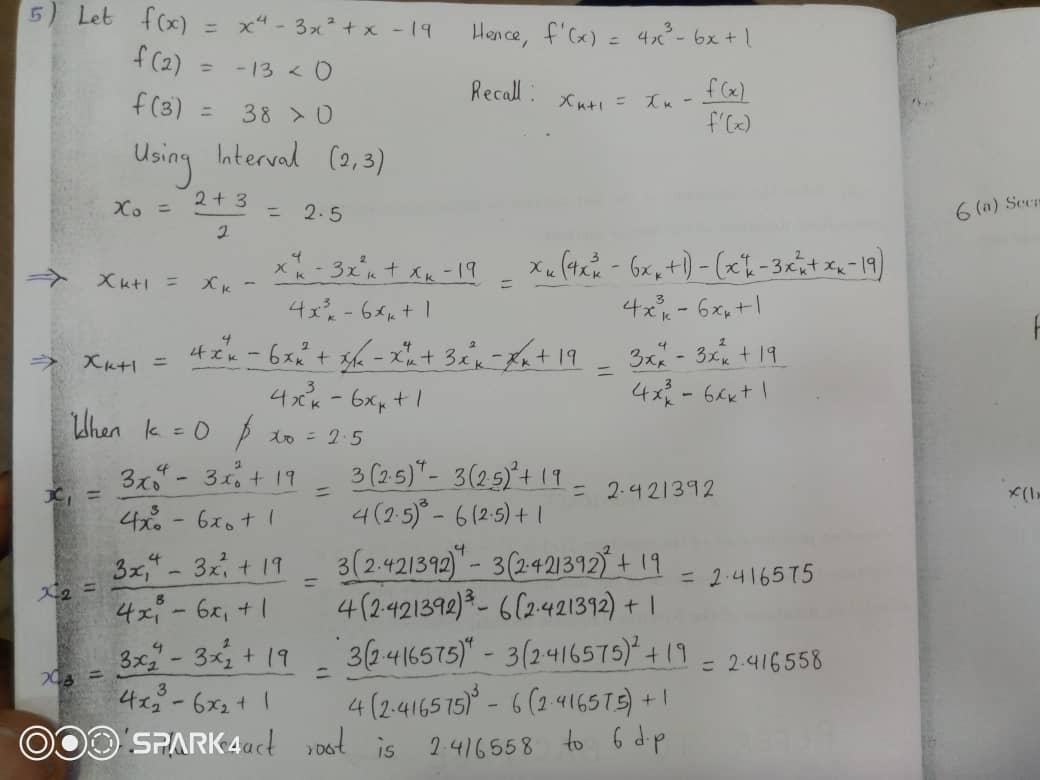 5) Let f(x) = x⁴ - 3x² + x - 19 Hence, f'(x) = 4x³ - 6x + 1
f(2) = -13 < 0
f(3) = 38 > 0
Recall: xₖ₊₁ = xₖ - f(x)/f'(x)
Using Interval (2,3)
x₀ = (2 + 3)/2 = 2.5
⇒ xₖ₊₁ = xₖ - (xₖ⁴ - 3xₖ² + xₖ - 19)/(4xₖ³ - 6xₖ + 1) = (xₖ(4xₖ³ - 6xₖ + 1) - (xₖ⁴ - 3xₖ² + xₖ - 19))/(4xₖ³ - 6xₖ + 1)
⇒ xₖ₊₁ = (4xₖ⁴ - 6xₖ² + xₖ - xₖ⁴ + 3xₖ² - xₖ + 19)/(4xₖ³ - 6xₖ + 1) = (3xₖ⁴ - 3xₖ² + 19)/(4xₖ³ - 6xₖ + 1)
When k = 0 & x₀ = 2.5
x₁ = (3x₀⁴ - 3x₀² + 19)/(4x₀³ - 6x₀ + 1) = (3(2.5)⁴ - 3(2.5)² + 19)/(4(2.5)³ - 6(2.5) + 1) = 2.421392
x₂ = (3x₁⁴ - 3x₁² + 19)/(4x₁³ - 6x₁ + 1) = (3(2.421392)⁴ - 3(2.421392)² + 19)/(4(2.421392)³ - 6(2.421392) + 1) = 2.416575
x₃ = (3x₂⁴ - 3x₂² + 19)/(4x₂³ - 6x₂ + 1) = (3(2.416575)⁴ - 3(2.416575)² + 19)/(4(2.416575)³ - 6(2.416575) + 1) = 2.416558
root is 2.416558 to 6 d.p
SPARK 4
6 (a)